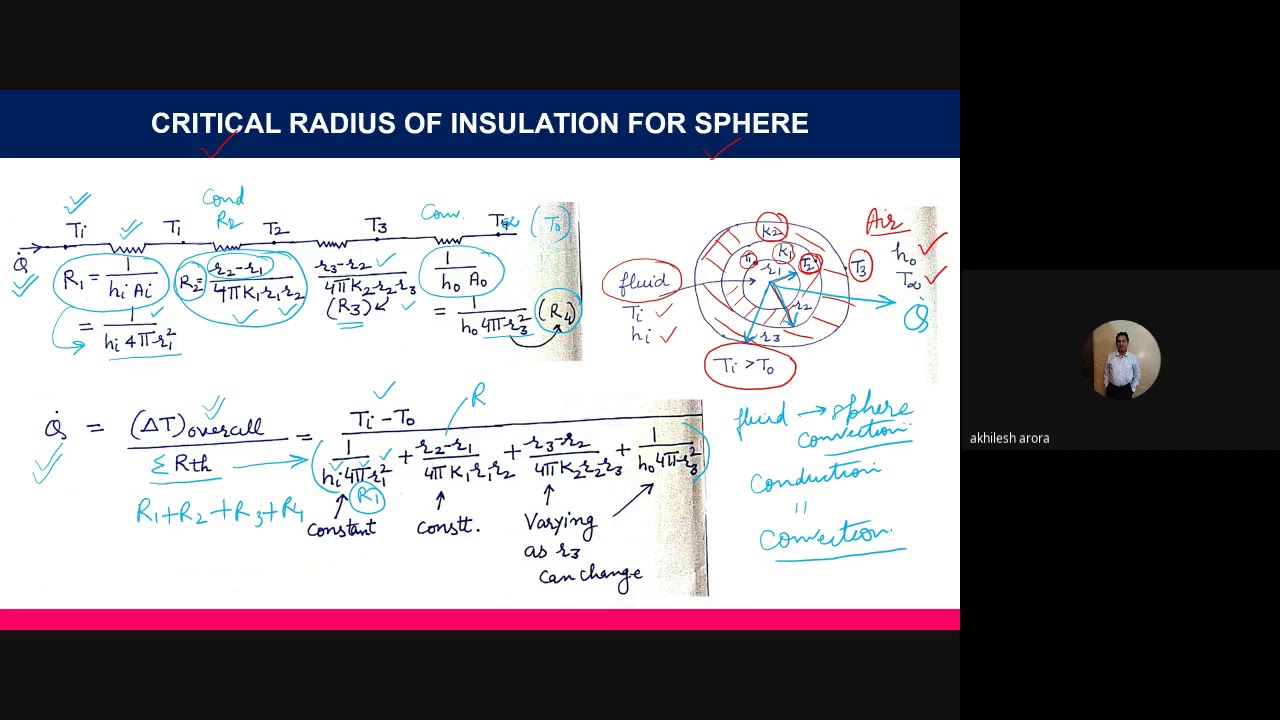 CRITICAL RADIUS OF INSULATION FOR SPHERE
Cond
R2
Conv.
Ti T1 T2 T3 (To)
Q̇
R1 = 1/(hi Ai) R2 = (r2-r1)/(4πK1r1r2) (r3-r2)/(4πK2r2r3) 1/(ho Ao)
= 1/(hi 4πr1²) (R3) = 1/(ho 4πr3²) (R4)
K2
K1
T1 T2 T3
r1
r2
r3
fluid
Ti
hi
Ti > To
Air
ho
T∞
Q̇
Q̇ = (ΔT)overall / ΣRth = (Ti - To) / (1/(hi 4πr1²) + (r2-r1)/(4πK1r1r2) + (r3-r2)/(4πK2r2r3) + 1/(ho 4πr3²))
R
R1
R1+R2+R3+R4
constant constt. Varying
as r3
can change
fluid → sphere
convection
Conduction
"
Convection.
akhilesh arora